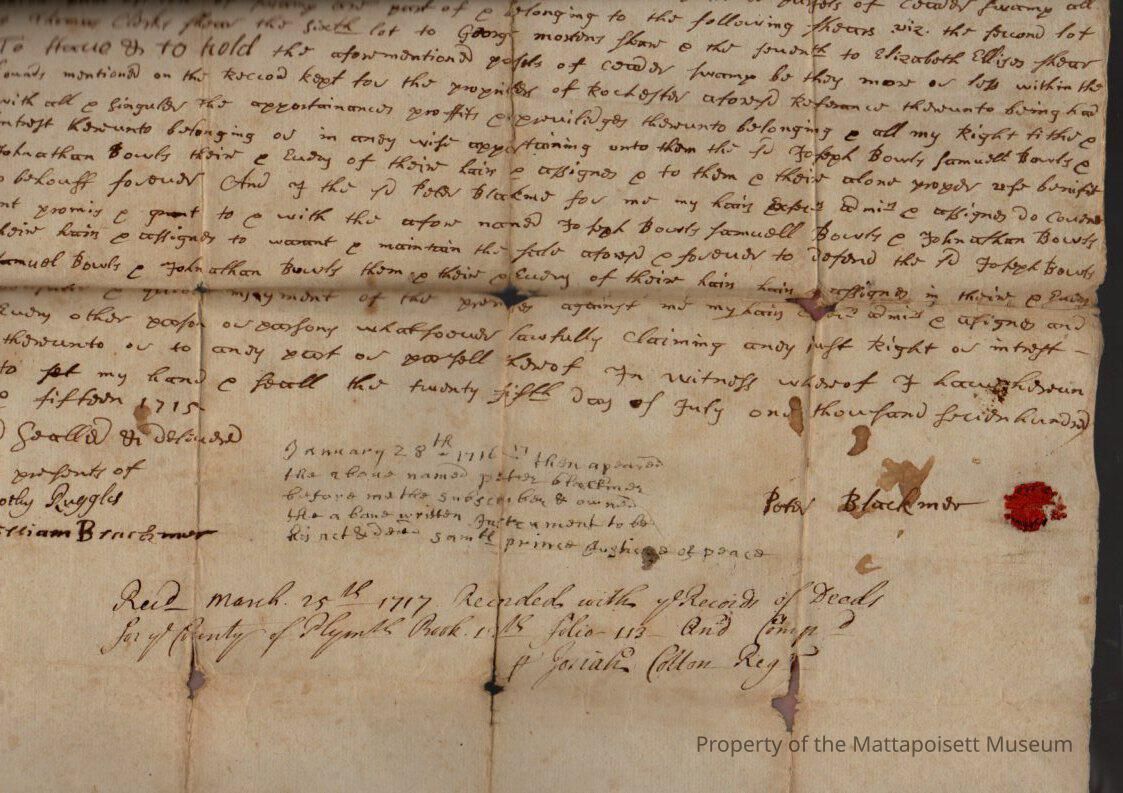 swamp are part of & belonging to the following shears viz. the second lot
Thomas Clarks shear the sixth lot to Georg mortens shear & the seventh to Elizabeth Ellises shear
To Haue & to hold the aforementioned of ceader swamp be they more or less within the
bounds mentioned on the Record kept for the of Rochester aforesd Referance thereunto being had
with all & singuler the appertainances proffits & previlidges thereunto belonging & all my Right title &
intrest hereunto belonging or in aney wise appertaining unto them the sd Joseph Bowls Samuell Bowls &
Johnathan Bowls their & Euery of theire hairs & assignes & to them & their alone proper use benifit
behouff foreuer And I the sd Peter Blackme for me my hairs admrs & assignes do couena
nt promis & grant to & with the afore named Joseph Bowls Samuell Bowls & Johnathan Bowls
theire hairs & assignes to warant & maintain the sale aforesd & foreuer to defend the sd Joseph Bowls
Samuel Bowls & Johnathan Bowls them & their & Euery of theire hairs assignes in their & Euery
injoyment of the premises against me my hairs admrs & asignes and
Euery other parson or parsons whatsoeuer lawfully Claiming aney just Right or intrest
thereunto or to aney part or parsell hereof In witness whereof I haue hereun
to set my hand & seall this twenty fifth day of July one thousand seuenhundred
& fifteen 1715
Sealled & deliuered
presents of
othy Ruggles
William Brackmer
January 28th 1716 then apeared
the aboue named peter blackmer
before me the subscriber & owned
the aboue written Instrument to be
his act & deed Samll prince Justice of peace
Peter Blackmer
Recd March. 25th 1717 Recorded with ye Records of Deeds
for ye County of Plymth Book. folio 113 And Compd
pr Josiah Cotton Regr
Property of the Mattapoisett Museum